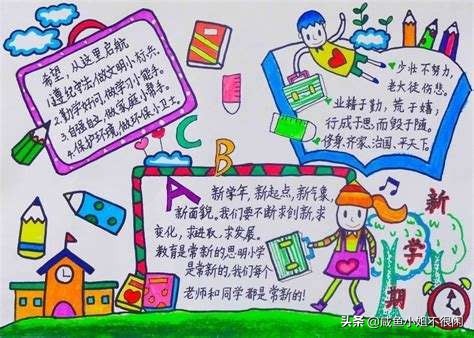 希望，从这里启航
1.遵纪守法，做文明小标兵。
2.勤学好问，做学习小能手。
3.自强自立，做家庭小帮手。
4.保护环境，做环保小卫士。
少壮不努力，
老大徒伤悲。
业精于勤，荒于嬉；
行成于思，而毁于随。
修身、齐家、治国、平天下。
A
B
C
新学年，新起点，新气象，
新面貌，我们要不断求创新，求
变化，求进取，求发展。
教育是常新的，思明小学
是常新的，我们每个
老师和同学都是常新的！
新
学
期
头条 @咸鱼小姐不很闲